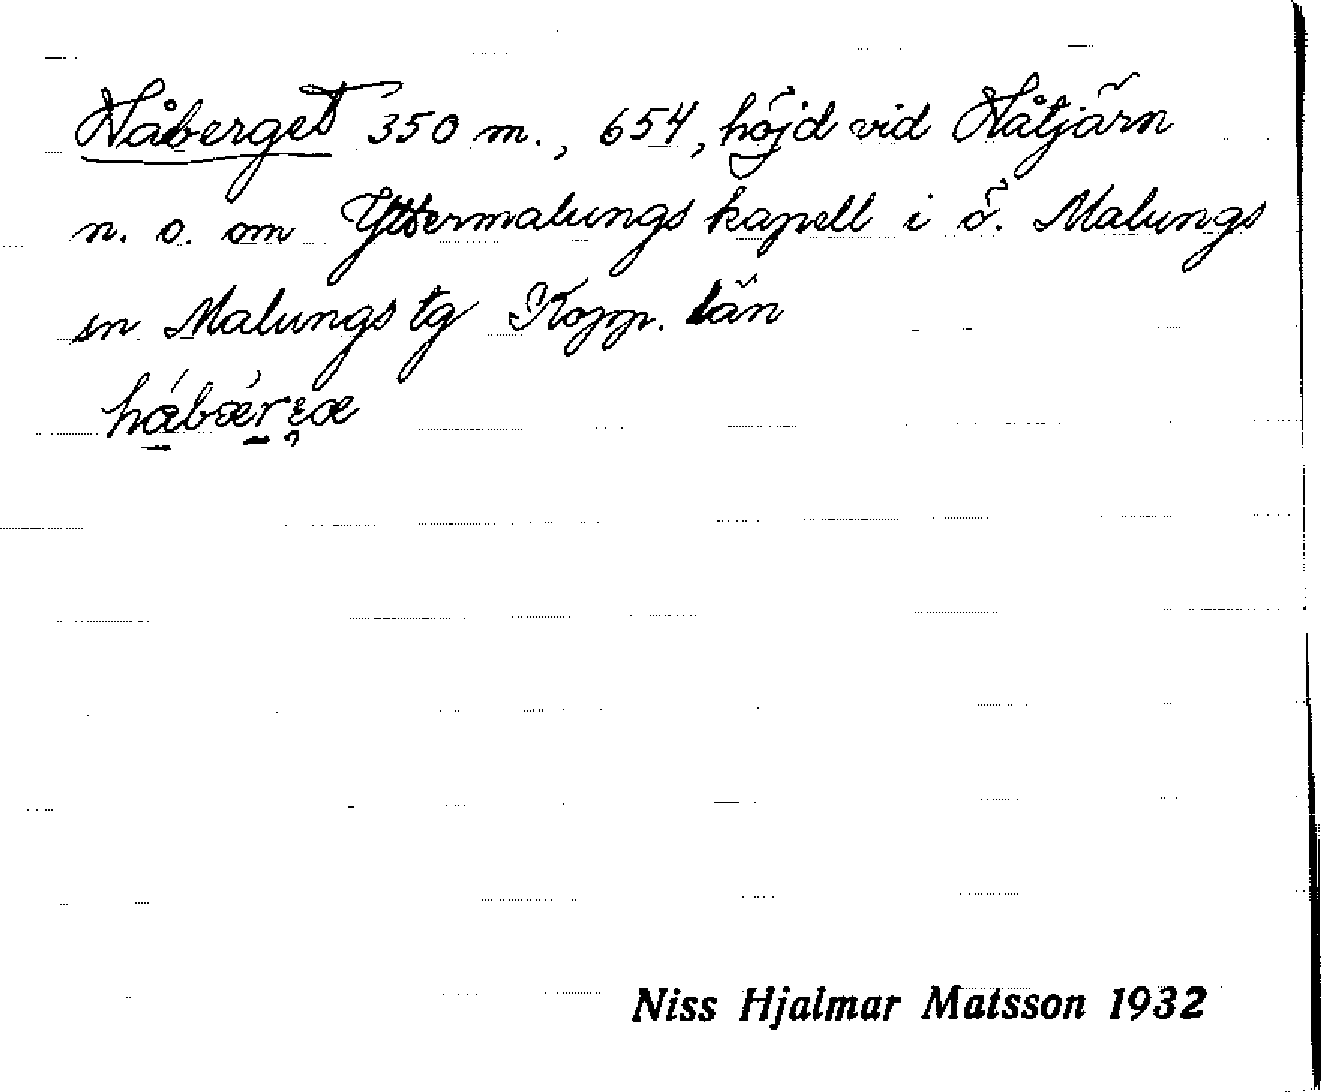 Håberget 350 m., 654, höjd vid Håtjärn
n. o. om Yttermalungs kapell i ö. Malungs
sn Malungs tg Kopp. län
Niss Hjalmar Matsson 1932